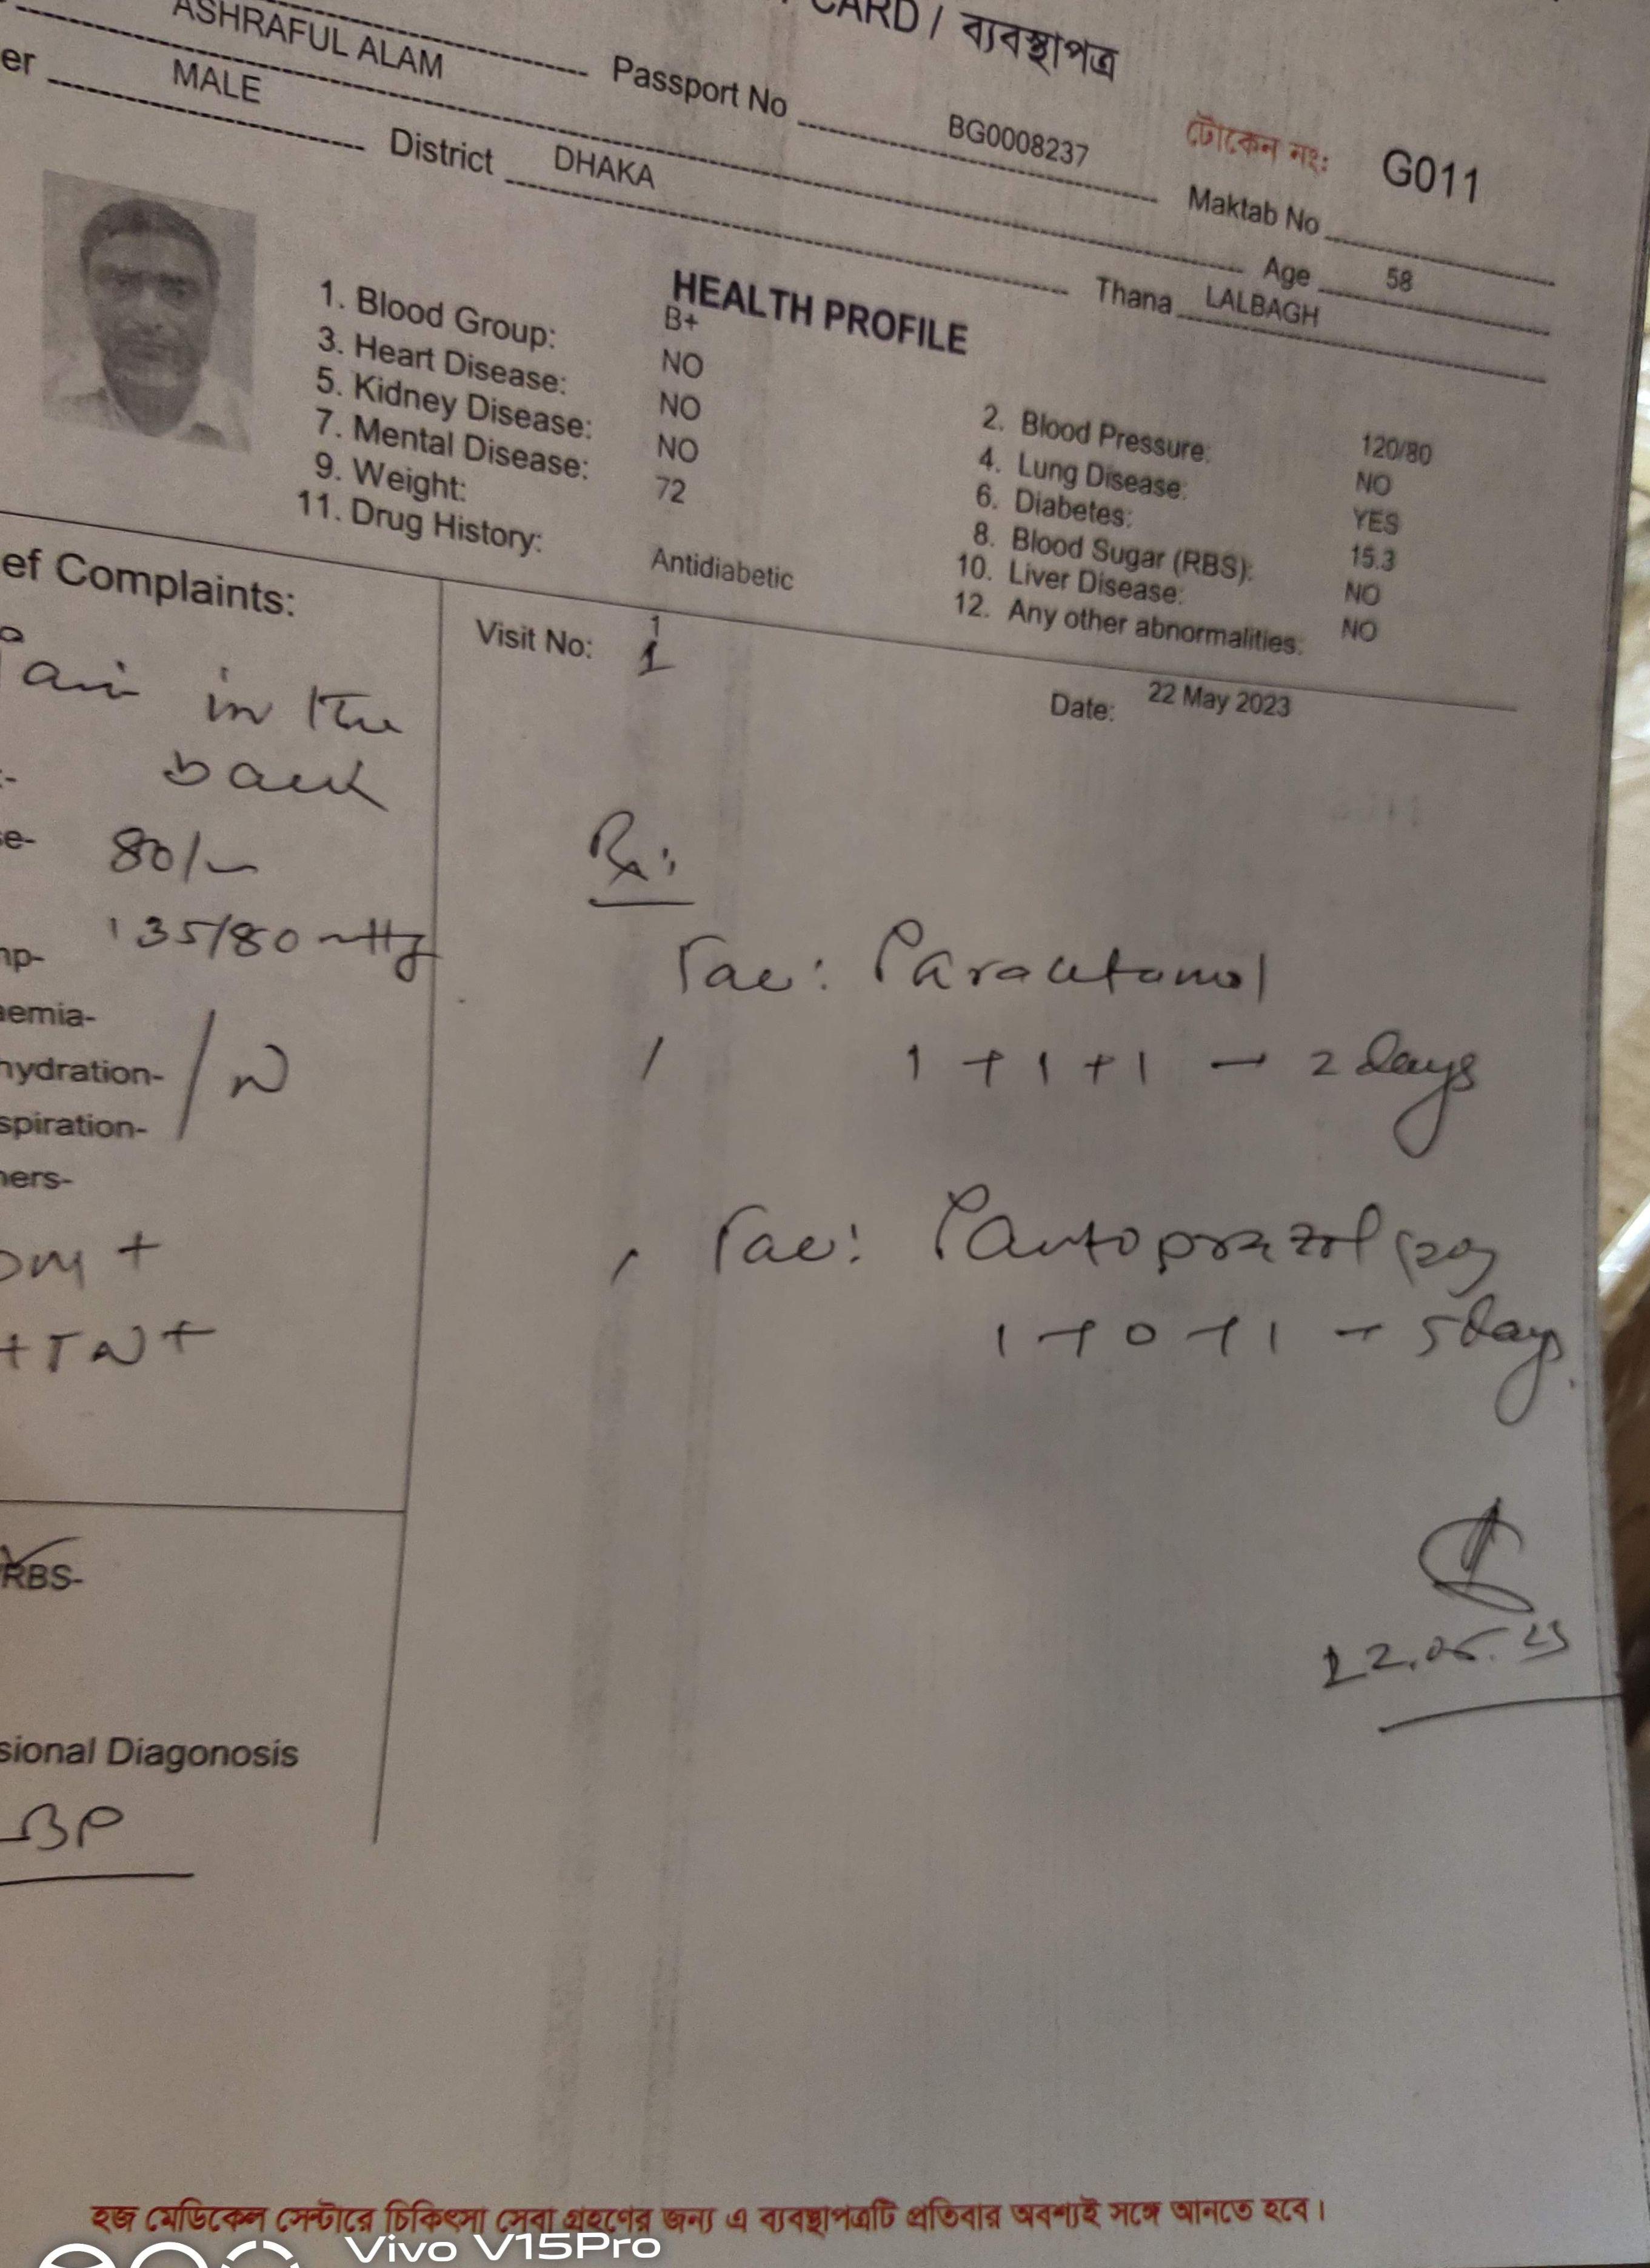 CARD / ব্যবস্থাপত্র
টোকেন নং: G011
ASHRAFUL ALAM Passport No BG0008237 Maktab No
er MALE Age 58
District DHAKA Thana LALBAGH
HEALTH PROFILE
1. Blood Group: B+ 2. Blood Pressure: 120/80
3. Heart Disease: NO 4. Lung Disease: NO
5. Kidney Disease: NO 6. Diabetes: YES
7. Mental Disease: NO 8. Blood Sugar (RBS): 15.3
9. Weight: 72 10. Liver Disease: NO
11. Drug History: Antidiabetic 12. Any other abnormalities: NO
ef Complaints:
Pain in the
back
e- 80/
135/80 mmHg
mp-
aemia-
hydration- N
spiration-
hers-
DM +
HTN +
RBS-
sional Diagonosis
LBP
Visit No: 1
1
Date: 22 May 2023
Rx:
Tab: Paracetamol
1 + 1 + 1 → 2 days
Tab: Pantoprazol (20)
1 + 0 + 1 → 5 days
22.05.23
হজ মেডিকেল সেন্টারে চিকিৎসা সেবা গ্রহণের জন্য এ ব্যবস্থাপত্রটি প্রতিবার অবশ্যই সঙ্গে আনতে হবে।
Vivo V15Pro